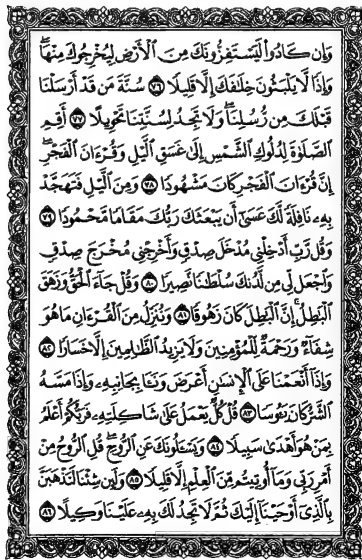 وَإِن كَادُوا۟ لَيَسْتَفِزُّونَكَ مِنَ ٱلْأَرْضِ لِيُخْرِجُوكَ مِنْهَا ۖ
وَإِذًا لَّا يَلْبَثُونَ خِلَـٰفَكَ إِلَّا قَلِيلًا ٧٦ سُنَّةَ مَن قَدْ أَرْسَلْنَا
قَبْلَكَ مِن رُّسُلِنَا ۖ وَلَا تَجِدُ لِسُنَّتِنَا تَحْوِيلًا ٧٧ أَقِمِ
ٱلصَّلَوٰةَ لِدُلُوكِ ٱلشَّمْسِ إِلَىٰ غَسَقِ ٱلَّيْلِ وَقُرْءَانَ ٱلْفَجْرِ ۖ
إِنَّ قُرْءَانَ ٱلْفَجْرِ كَانَ مَشْهُودًا ٧٨ وَمِنَ ٱلَّيْلِ فَتَهَجَّدْ
بِهِۦ نَافِلَةً لَّكَ عَسَىٰٓ أَن يَبْعَثَكَ رَبُّكَ مَقَامًا مَّحْمُودًا ٧٩
وَقُل رَّبِّ أَدْخِلْنِى مُدْخَلَ صِدْقٍ وَأَخْرِجْنِى مُخْرَجَ صِدْقٍ
وَٱجْعَل لِّى مِن لَّدُنكَ سُلْطَـٰنًا نَّصِيرًا ٨٠ وَقُلْ جَآءَ ٱلْحَقُّ وَزَهَقَ
ٱلْبَـٰطِلُ ۚ إِنَّ ٱلْبَـٰطِلَ كَانَ زَهُوقًا ٨١ وَنُنَزِّلُ مِنَ ٱلْقُرْءَانِ مَا هُوَ
شِفَآءٌ وَرَحْمَةٌ لِّلْمُؤْمِنِينَ ۙ وَلَا يَزِيدُ ٱلظَّـٰلِمِينَ إِلَّا خَسَارًا ٨٢
وَإِذَآ أَنْعَمْنَا عَلَى ٱلْإِنسَـٰنِ أَعْرَضَ وَنَـَٔا بِجَانِبِهِۦ ۖ وَإِذَا مَسَّهُ
ٱلشَّرُّ كَانَ يَـُٔوسًا ٨٣ قُلْ كُلٌّ يَعْمَلُ عَلَىٰ شَاكِلَتِهِۦ فَرَبُّكُمْ أَعْلَمُ
بِمَنْ هُوَ أَهْدَىٰ سَبِيلًا ٨٤ وَيَسْـَٔلُونَكَ عَنِ ٱلرُّوحِ ۖ قُلِ ٱلرُّوحُ مِنْ
أَمْرِ رَبِّى وَمَآ أُوتِيتُم مِّنَ ٱلْعِلْمِ إِلَّا قَلِيلًا ٨٥ وَلَئِن شِئْنَا لَنَذْهَبَنَّ
بِٱلَّذِىٓ أَوْحَيْنَآ إِلَيْكَ ثُمَّ لَا تَجِدُ لَكَ بِهِۦ عَلَيْنَا وَكِيلًا ٨٦